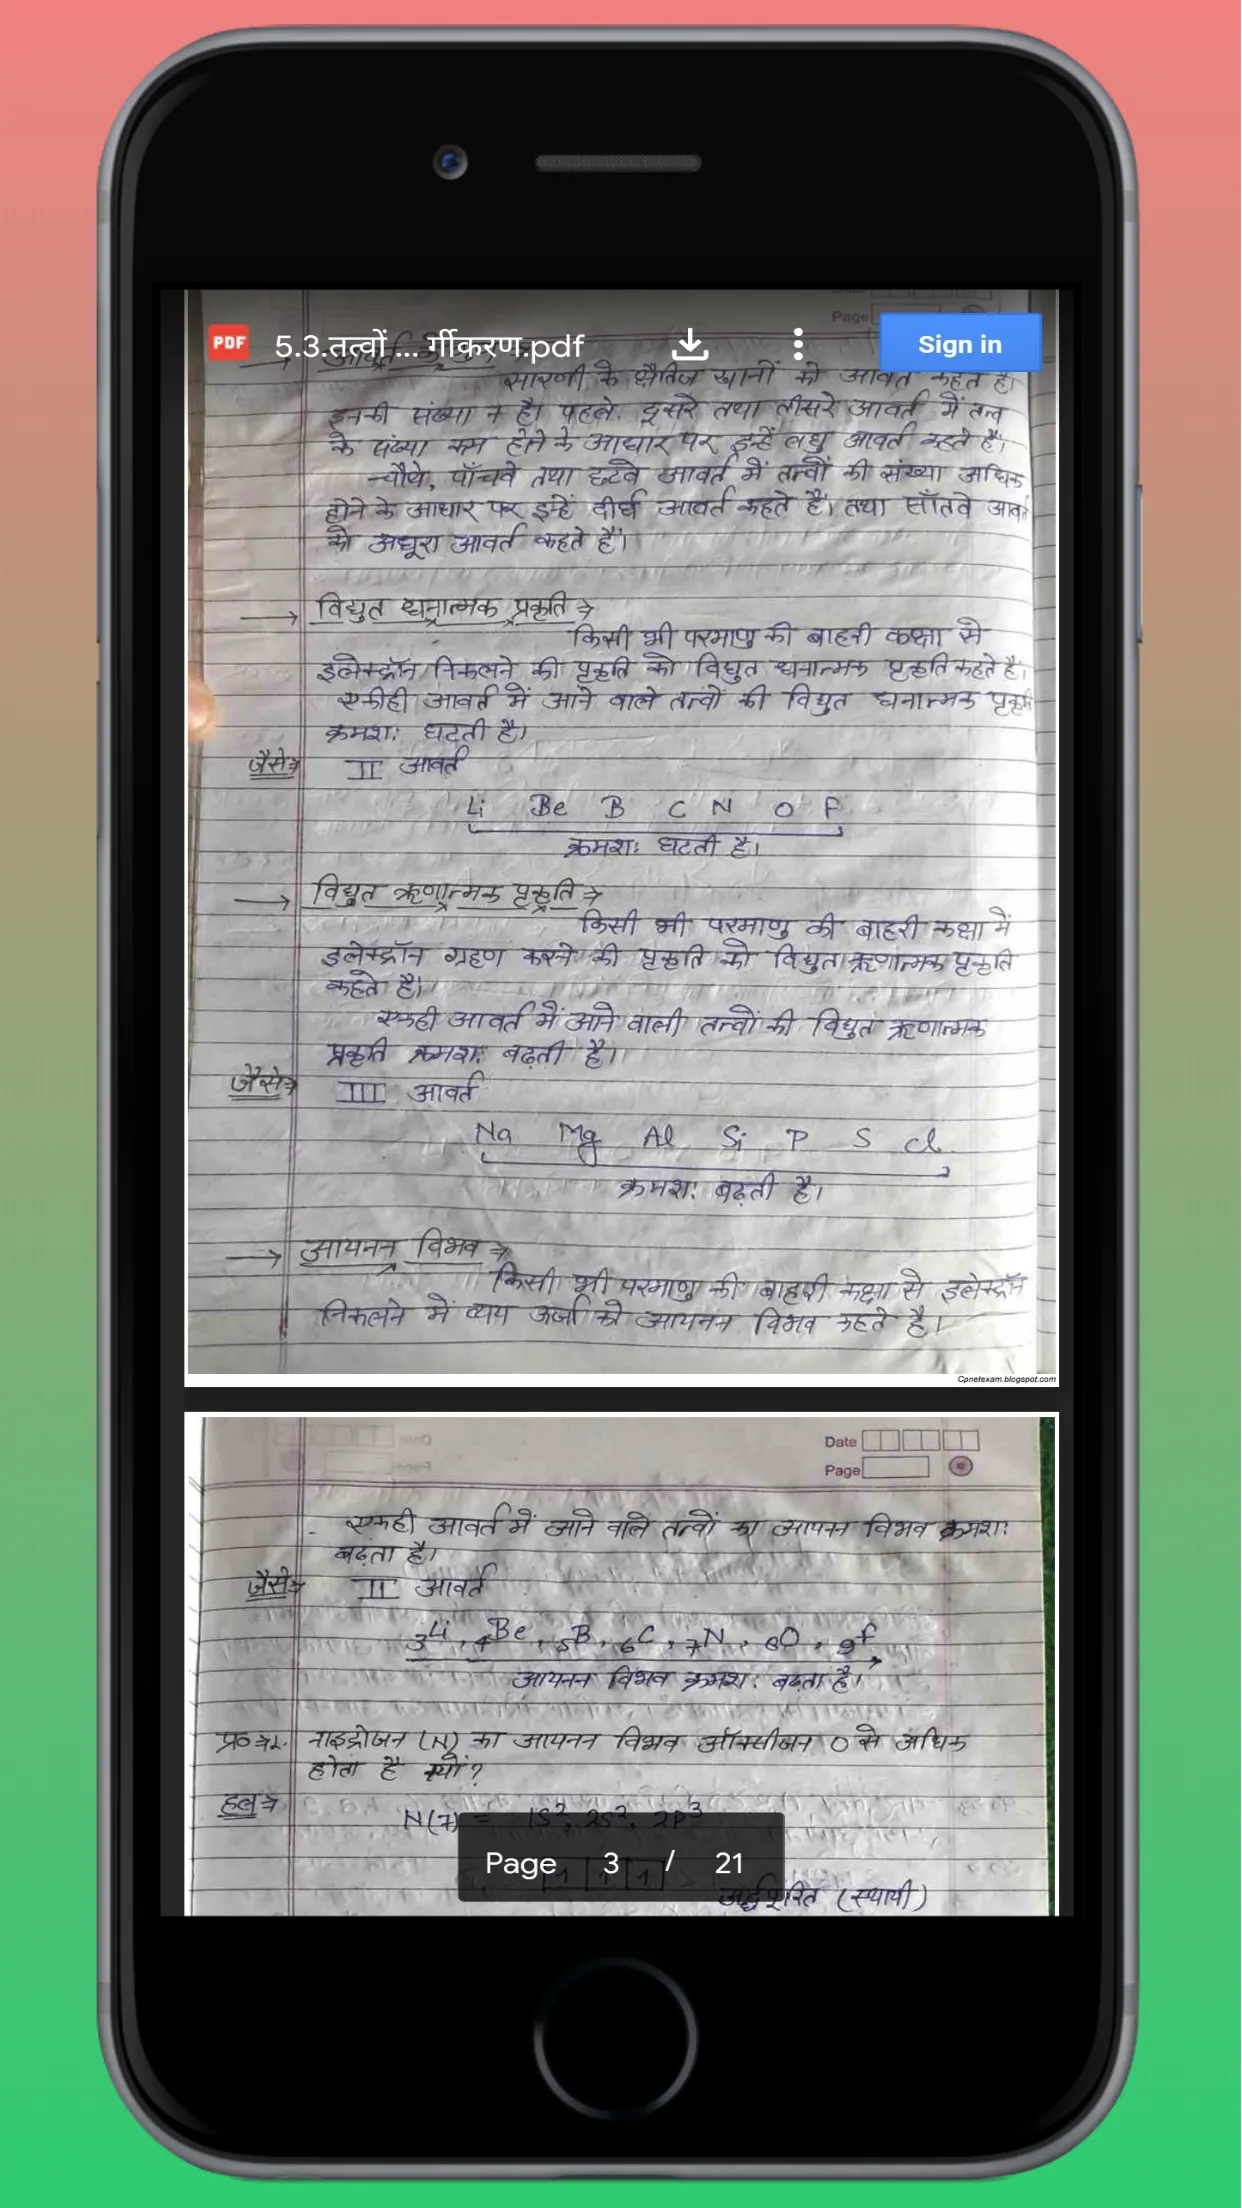 Page
PDF 5.3.तत्वों ... र्गीकरण.pdf Sign in
सारणी के क्षैतिज खानों को आवर्त कहते है।
इनकी संख्या 7 है। पहले, दूसरे तथा तीसरे आवर्त में तत्व
के संख्या कम होने के आधार पर इन्हें लघु आवर्त कहते हैं,
चौथे, पाँचवे तथा छटवे आवर्त में तत्वों की संख्या अधिक
होने के आधार पर इन्हें दीर्घ आवर्त कहते हैं। तथा साँतवे आवर्त
को अधूरा आवर्त कहते हैं।
→ विद्युत धनात्मक प्रकृति ⇒
किसी भी परमाणु की बाहरी कक्षा से
इलेक्ट्रॉन निकलने की प्रकृति को विद्युत धनात्मक प्रकृति कहते है।
एकही आवर्त में आने वाले तत्वों की विद्युत धनात्मक प्रकृति
क्रमशः घटती है।
जैसे⇒ II आवर्त
Li Be B C N O F
क्रमशः घटती है।
→ विद्युत ऋणात्मक प्रकृति ⇒
किसी भी परमाणु की बाहरी कक्षा में
इलेक्ट्रॉन ग्रहण करने की प्रकृति को विद्युत ऋणात्मक प्रकृति
कहते है।
एकही आवर्त में आने वाली तत्वों की विद्युत ऋणात्मक
प्रकृति क्रमशः बढ़ती है।
जैसे⇒ III आवर्त
Na Mg Al Si P S Cl
क्रमशः बढ़ती है।
→ आयनन विभव ⇒
किसी भी परमाणु की बाहरी कक्षा से इलेक्ट्रॉन
निकलने में व्यय ऊर्जा को आयनन विभव कहते है।
Cpnetexam.blogspot.com
Date
Page
एकही आवर्त में आने वाले तत्वों का आयनन विभव क्रमशः
बढ़ता है।
जैसे⇒ II आवर्त
₃Li, ₄Be, ₅B, ₆C, ₇N, ₈O, ₉F
आयनन विभव क्रमशः बढ़ता है।
प्र०⇒1. नाइट्रोजन (N) का आयनन विभव ऑक्सीजन O से अधिक
होता है क्यों?
हल⇒
N(7) = 1S², 2S², 2P³
Page 3 / 21
(स्थायी)